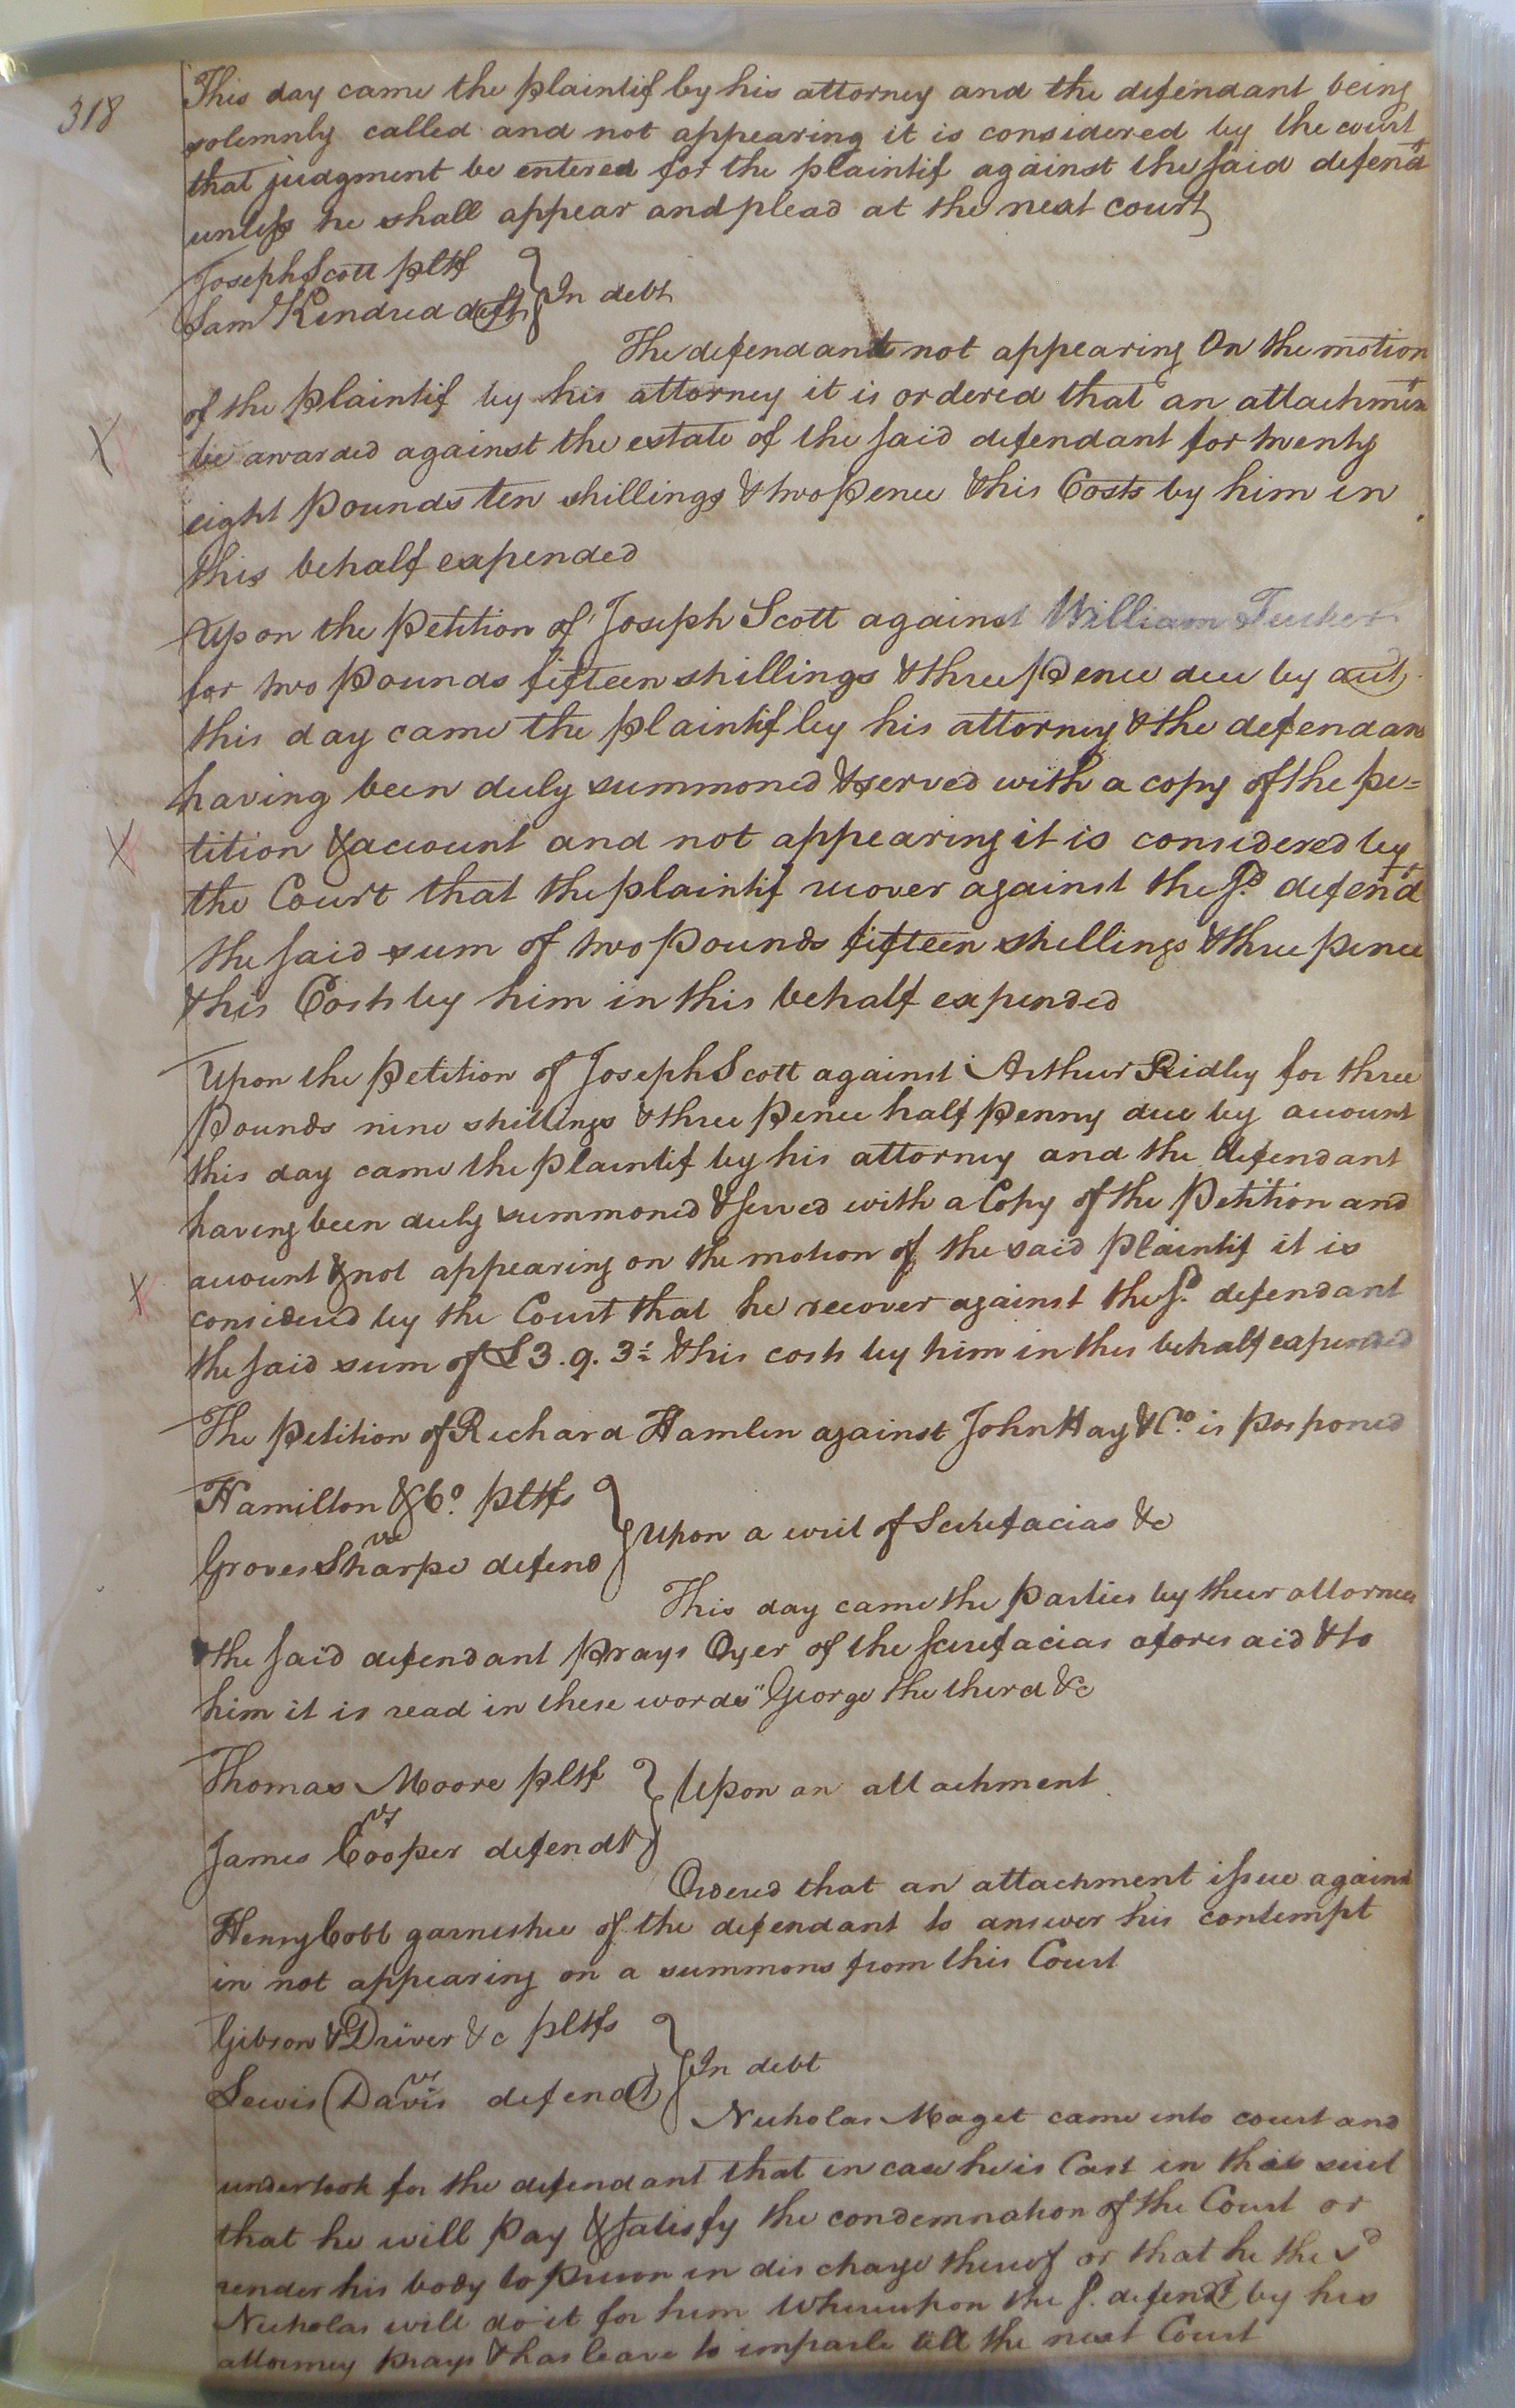 318
This day came the plaintif by his attorney and the defendant being
solemnly called and not appearing it is considered by the court
that judgment be entered for the plaintif against the said defendt
unless he shall appear and plead at the next court
Joseph Scott pltf
Sam Kendred deft } In debt
The defendant not appearing On the motion
of the plaintif by his attorney it is ordered that an attachment
be awarded against the estate of the said defendant for twenty
eight pounds ten shillings & two pence & his Costs by him in
this behalf expended
Upon the Petition of Joseph Scott against William Tucker
for two Pounds fifteen shillings & three pence due by acct
this day came the plaintif by his attorney & the defendan
having been duly summoned & served with a copy of the pe=
tition & account and not appearing it is considered by
the Court that the plaintif recover against the sd. defendt
the said sum of two pounds fifteen shillings & three pence
& his Costs by him in this behalf expended
Upon the Petition of Joseph Scott against Arthur Ridley for three
Pounds nine shillings & three pence half penny due by account
this day came the plaintif by his attorney and the defendant
having been duly summoned & served with a Copy of the Petition and
account & not appearing on the motion of the said plaintif it is
considered by the Court that he recover against the sd. defendant
the said sum of £3.9.3½ & his costs by him in this behalf expended
The petition of Richard Hamlin against John Hay & Co. is posponed
Hamilton & Co. pltfs
vs
Groves Sharpe defend } Upon a writ of Scirefacias &c
This day came the parties by their attornies
the said defendant prays Oyer of the scirefacias aforesaid & to
him it is read in these words "George the third &c
Thomas Moore pltf
vs
James Cooper defendt } Upon an attachment
Ordered that an attachment issue against
Henry Cobb garnishee of the defendant to answer his contempt
in not appearing on a summons from this Court
Gibson & Driver &c pltfs
vs
Lewis Davis defendt } In debt
Nicholas Maget came into court and
undertook for the defendant that in case he is Cast in this suit
that he will pay & satisfy the condemnation of the Court or
render his body to prison in discharge thereof or that he the sd
Nicholas will do it for him Whereupon the s. defendt by his
attorney prays & has leave to imparle till the next Court